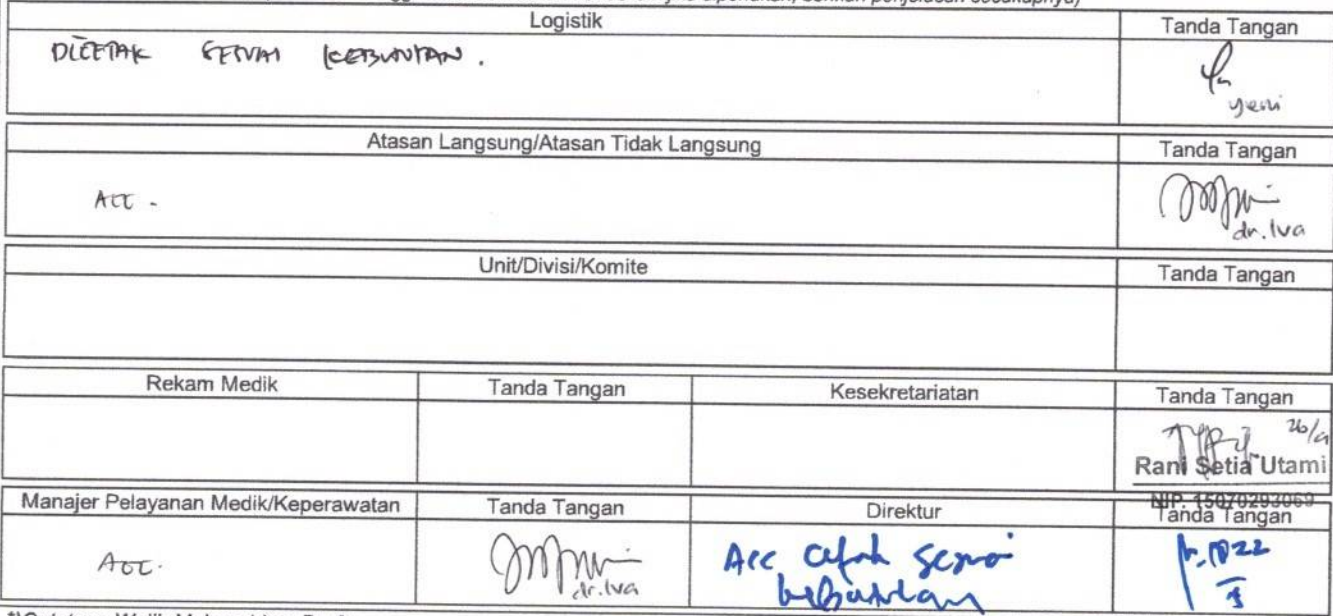 diperlukan, berikan penjelasan secukupnya)
Logistik
Tanda Tangan
DICETAK SESUAI KEBUTUHAN.
yeni
Atasan Langsung/Atasan Tidak Langsung
Tanda Tangan
ACC -
dr. Iva
Unit/Divisi/Komite
Tanda Tangan
Rekam Medik
Tanda Tangan
Kesekretariatan
Tanda Tangan
Rani Setia Utami
NIP. 15070293069
Manajer Pelayanan Medik/Keperawatan
Tanda Tangan
Direktur
Tanda Tangan
ACC.
dr. Iva
Acc cetak sesuai
kebutuhan